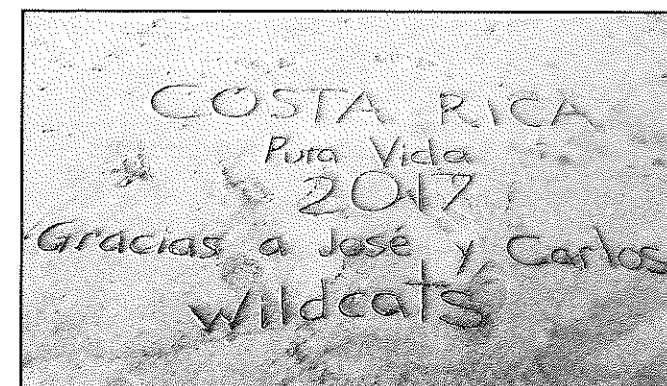 COSTA RICA
Pura Vida
2017
Gracias a José y Carlos
Wildcats